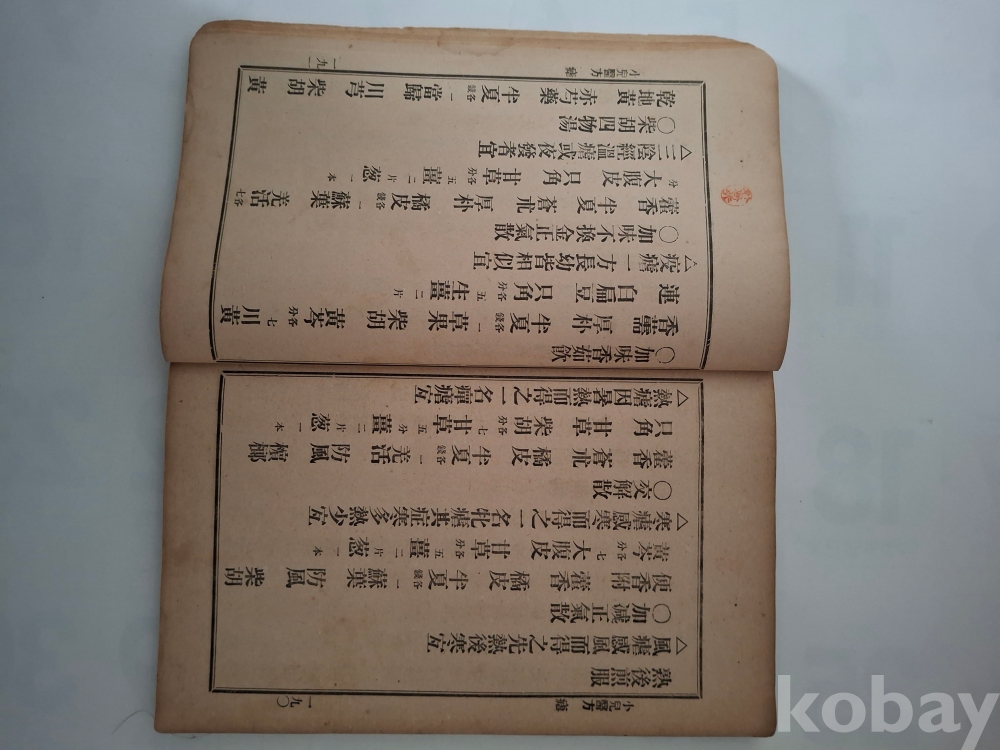 小兒醫方 瘧
熱後煎服
△風瘧感風而得之先熱後寒宜
○加減正氣散
便香附 藿香 橘皮 半夏各一錢 蘇葉 防風 柴胡
黃芩各七分 大腹皮 甘草各五分 薑二片 葱一本
△寒瘧感寒而得之一名牝瘧其症寒多熱少宜
○交解散
藿香 蒼朮 橘皮 半夏各一錢 羌活 防風 檳榔
只角 甘草 柴胡各七分 甘草五分 薑二片 葱一本
△熱瘧因暑熱而得之一名癉瘧宜
一九〇
小兒醫方 瘧
○加味香茹飮
香薷 厚朴 半夏各一錢 草果 柴胡 黃芩各七分 川黃
連 白扁豆 只角各五分 生薑二片
△疫瘧一方長幼皆相似宜
○加味不換金正氣散
藿香 半夏 蒼朮 厚朴 橘皮各一錢 蘇葉 羌活各七
分 大腹皮 只角 甘草各五分 薑二片 葱一本
△三陰經溫瘧或夜發者宜
○柴胡四物湯
乾地黃 赤芍藥 半夏各一錢 當歸 川芎 柴胡 黃
一九一
kobay